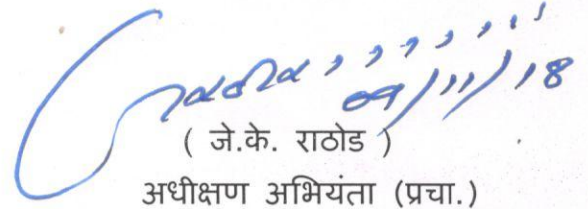 09/11/18
( जे.के. राठोड )
अधीक्षण अभियंता (प्रचा.)